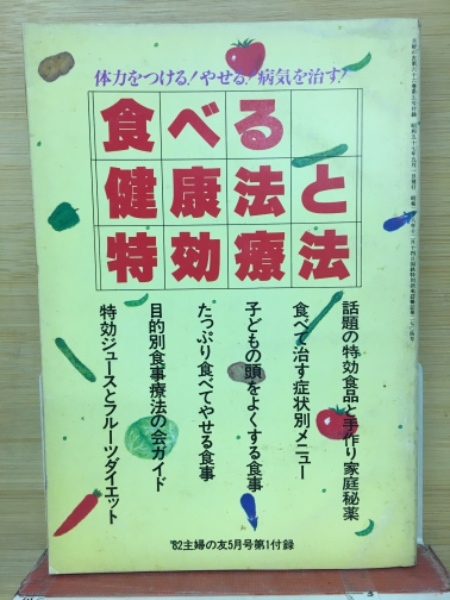 体力をつける!やせる!病気を治す!
食べる
健康法と
特効療法
話題の特効食品と手作り家庭秘薬
食べて治す症状別メニュー
子どもの頭をよくする食事
たっぷり食べてやせる食事
目的別食事療法の会ガイド
特効ジュースとフルーツダイエット
'82主婦の友5月号第1付録